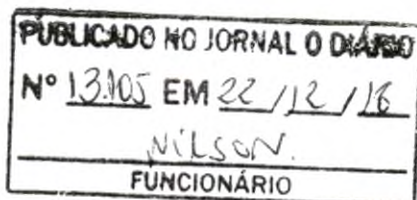 PUBLICADO NO JORNAL O DIÁRIO
Nº 13.105 EM 22 / 12 / 16
NILSON.
FUNCIONÁRIO